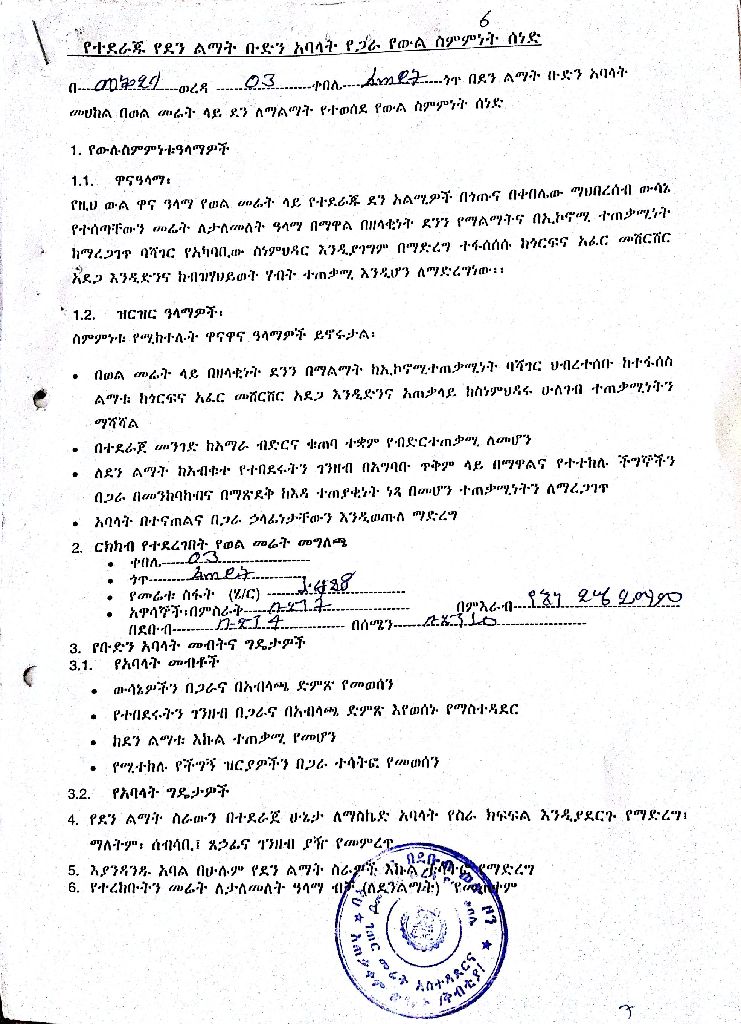 6
የተደራጁ የደን ልማት ቡድን አባላት የጋራ የውል ስምምነት ሰነድ
በ ወረዳ 03 ቀበሌ ጎጥ በደን ልማት ቡድን አባላት
መሀከል በወል መሬት ላይ ደን ለማልማት የተወሰደ የውል ስምምነት ሰነድ
1. የውሉስምምነቱዓላማዎች
1.1. ዋናዓላማ፡
የዚህ ውል ዋና ዓላማ የወል መሬት ላይ የተደራጁ ደን አልሚዎች በጎጡና በቀበሌው ማህበረሰብ ውሳኔ
የተሰጣቸውን መሬት ለታለመለት ዓላማ በማዋል በዘላቂነት ደንን የማልማትና በኢኮኖሚ ተጠቃሚነት
ከማረጋገጥ ባሻገር የአካባቢው ስነምህዳር እንዲያገግም በማድረግ ተፋሰሰሱ ከጎርፍና አፈር መሸርሸር
አደጋ እንዲድንና ከብዝሃህይወት ሃብት ተጠቃሚ እንዲሆን ለማድረግነው፡፡
1.2. ዝርዝር ዓላማዎች፡
ስምምነቱ የሚከተሉት ዋናዋና ዓላማዎች ይኖሩታል፡
• በወል መሬት ላይ በዘላቂነት ደንን በማልማት ከኢኮኖሚተጠቃሚነት ባሻገር ህብረተሰቡ ከተፋሰስ
ልማቱ ከጎርፍና አፈር መሸርሸር አደጋ እንዲድንና አጠቃላይ ከስነምህዳሩ ሁለገብ ተጠቃሚነትን
ማሻሻል
• በተደራጀ መንገድ ከአማራ ብድርና ቁጠባ ተቋም የብድርተጠቃሚ ለመሆን
• ለደን ልማት ከአብቁተ የተበደሩትን ገንዘብ በአግባቡ ጥቅም ላይ በማዋልና የተተከሉ ችግኞችን
በጋራ በመንከባከብና በማጽደቅ ከእዳ ተጠያቂነት ነጻ በመሆን ተጠቃሚነትን ለማረጋገጥ
• አባላት በተናጠልና በጋራ ኃላፊነታቸውን እንዲወጡለ ማድረግ
2. ርክክብ የተደረገበት የወል መሬት መግለጫ
• ቀበሌ 03
• ጎጥ
• የመሬቱ ስፋት (ሄ/ር)
• አዋሳኞች፡በምስራቅ በምእራብ
በደቡብ በሰሜን
3. የቡድን አባላት መብትና ግዴታዎች
3.1. የአባላት መብቶች
• ውሳኔዎችን በጋራና በአብላጫ ድምጽ የመወሰን
• የተበደሩትን ገንዘብ በጋራና በአብላጫ ድምጽ እየወሰኑ የማስተዳደር
• ከደን ልማቱ እኩል ተጠቃሚ የመሆን
• የሚተከሉ የችግኝ ዝርያዎችን በጋራ ተሳትፎ የመወሰን
3.2. የአባላት ግዴታዎች
4. የደን ልማት ስራውን በተደራጀ ሁኔታ ለማስኬድ አባላት የስራ ክፍፍል እንዲያደርጉ የማድረግ፡
ማለትም፡ ሰብሳቢ፤ ጸኃፊና ገንዘብ ያዥ የመምረጥ
5. እያንዳንዱ አባል በሁሉም የደን ልማት ስራዎች እኩል የማድረግ
6. የተረከቡትን መሬት ለታለመለት ዓላማ ብቻ (ለደንልማት)
ገጠር መሬት አስተዳደርና